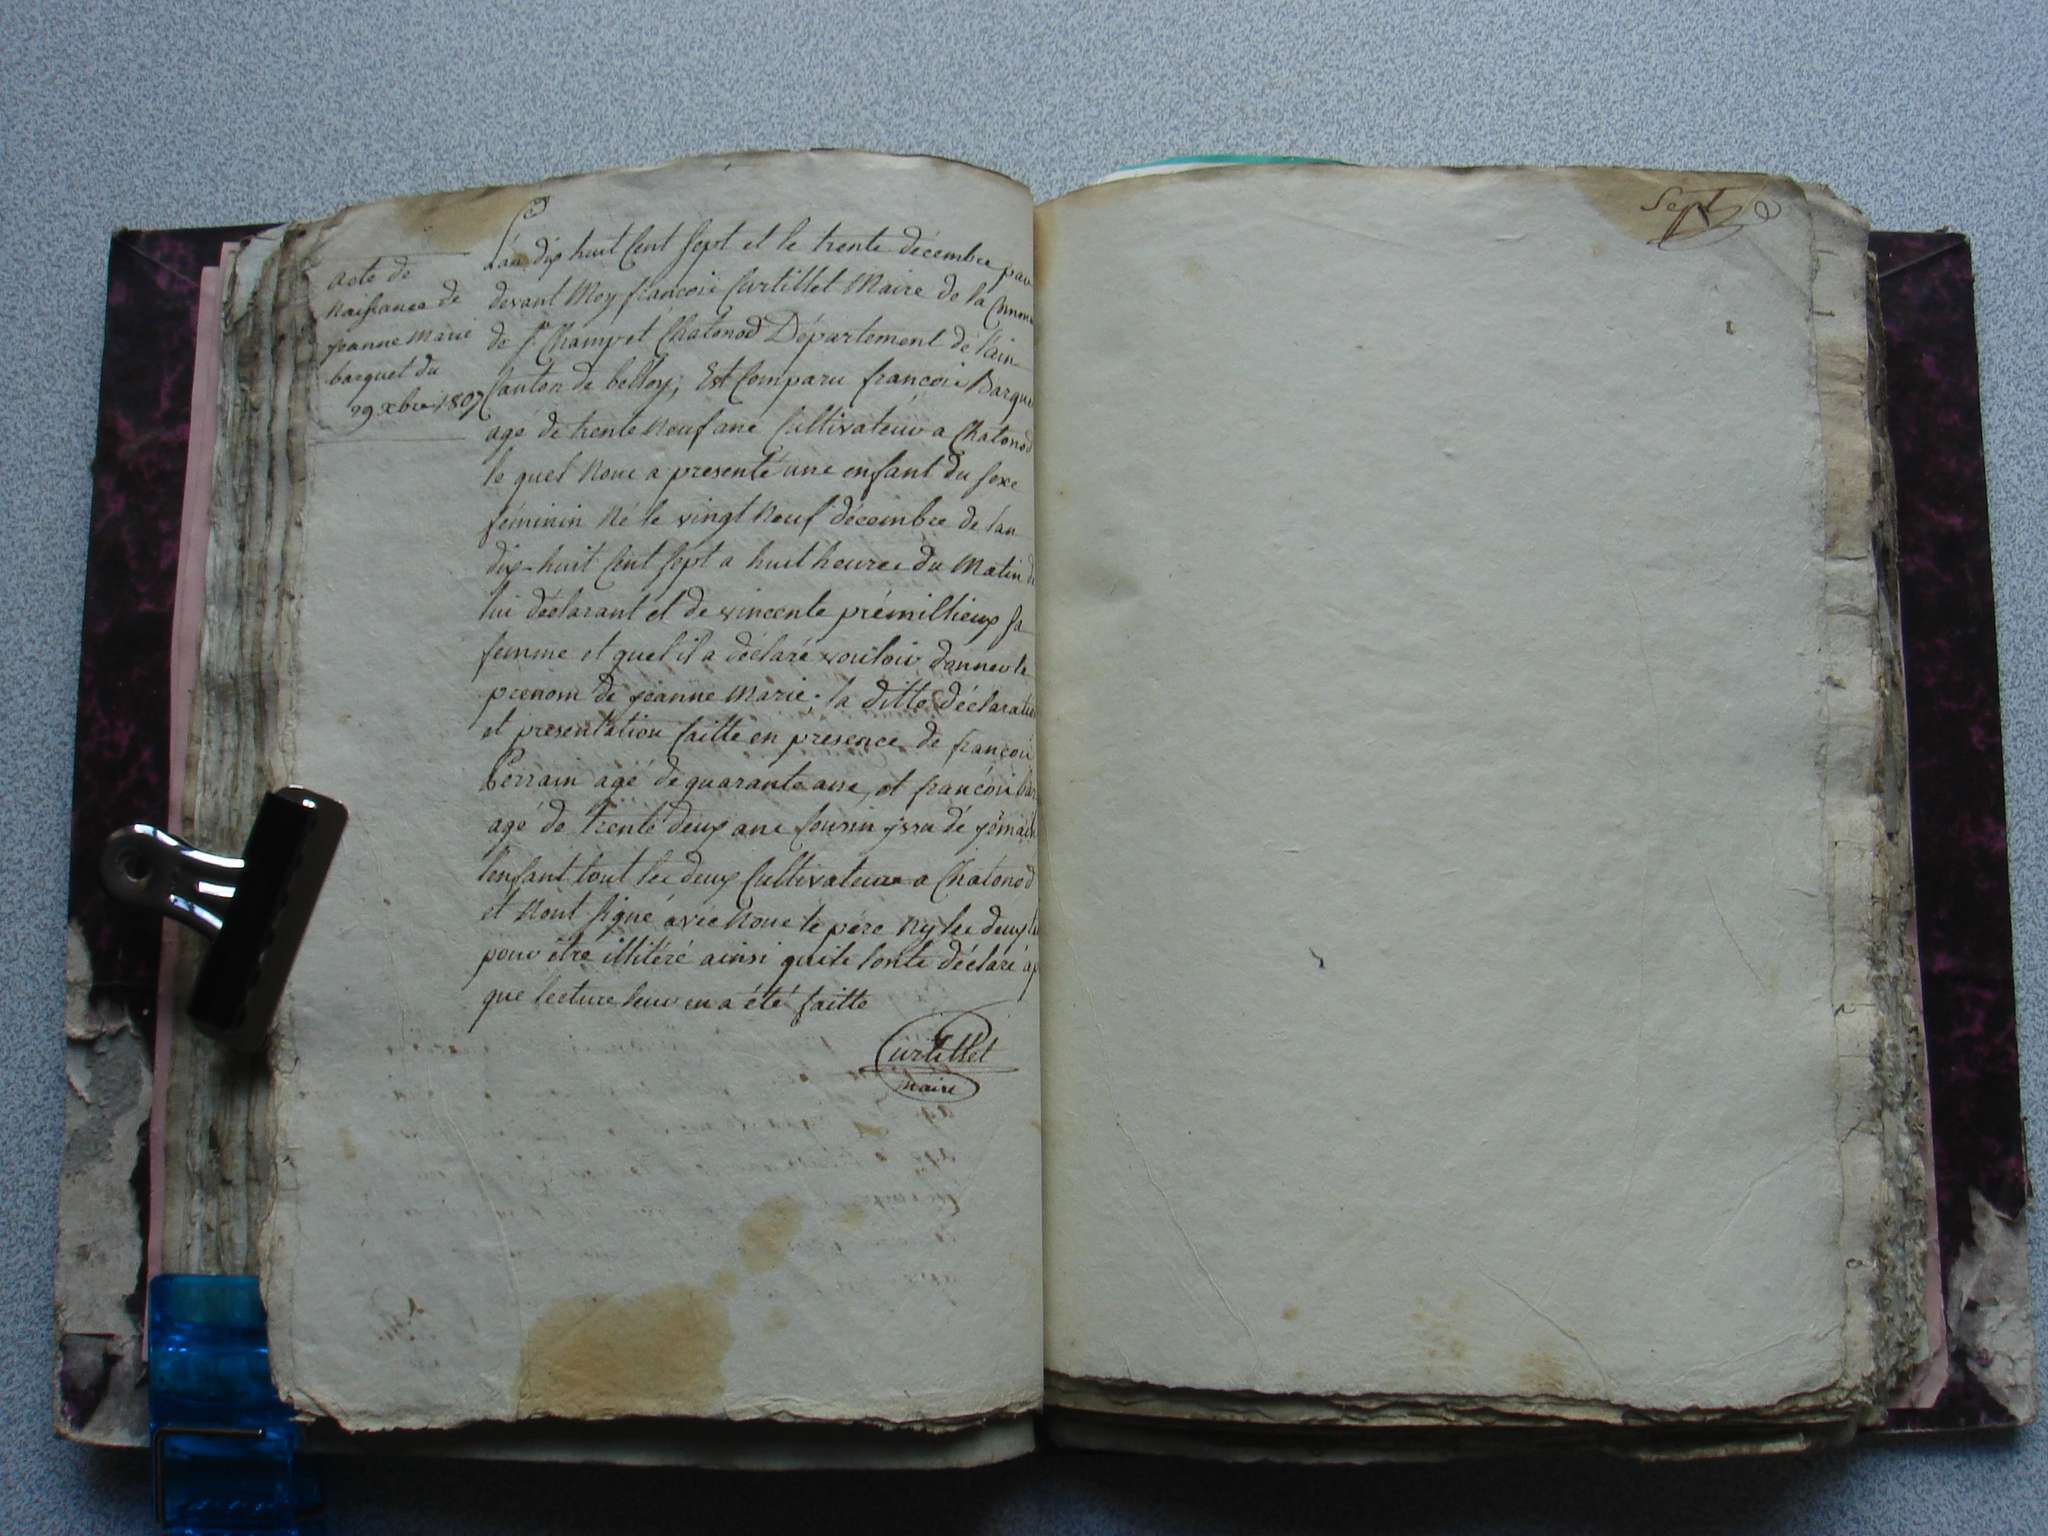 acte de
Naissance de
jeanne Marie
barquet du
29 xbre 1807
Lan dix huit Cent sept et le trente décembre par
devant Moy francois Curtillet Maire de la
de st Champ et Chatonod Département de l'ain
Canton de belley, Est Comparu francois Barque
agé de trente Neuf ans Cultivateur a Chatonod
le quel Nous a presenté une enfant du sexe
féminin Né le vingt Neuf décembre de l'an
dix-huit Cent sept a huit heures du Matin de
lui déclarant et de vincente prémillieux sa
femme et quel il a déclaré vouloir donner le
prenom de jeanne Marie; la ditte déclaration
et presentation faitte en presence de francois
Perrain agé de quarante ans, et francois bar
agé de trente deux ans Cousin yssu de
l'enfant tout les deux Cultivateurs a Chatonod
et Nont signé avec Nous le père Ny les deux
pour être illitéré ainsi quils lonts déclaré ap
que lecture leur en a été faitte
Curtillet
maire
Sept